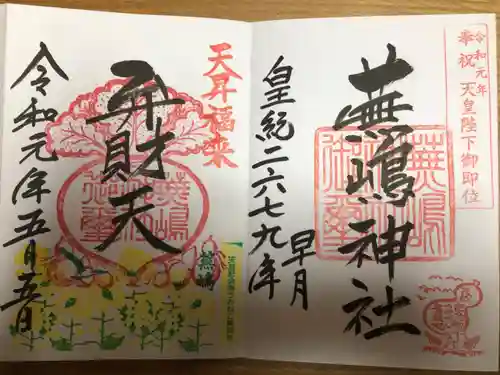 令和元年
奉祝 天皇陛下御即位
蕪嶋神社
早月
皇紀二六七九年
天昇福来
弁財天
令和元年五月五日
蕪嶋